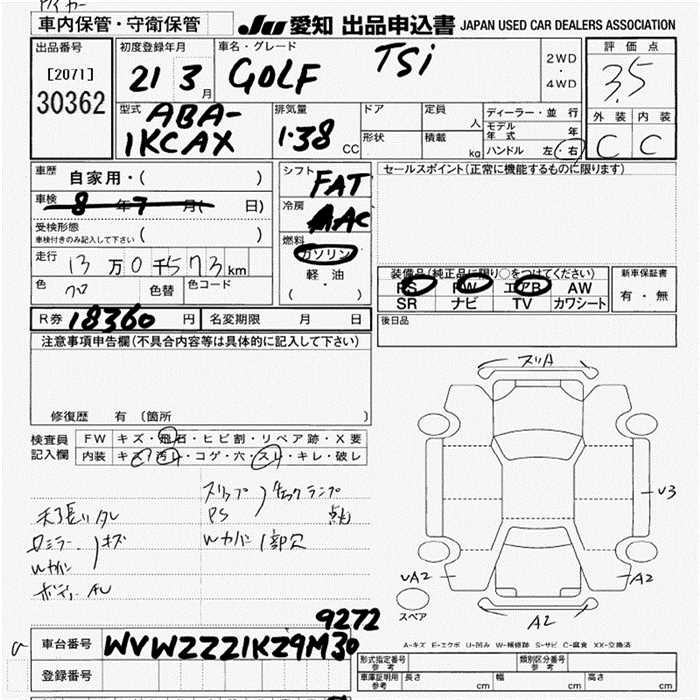 車内保管・守衛保管
JU 愛知 出品申込書 JAPAN USED CAR DEALERS ASSOCIATION
出品番号
[2071]
30362
初度登録年月
21 3月
車名・グレード
GOLF TSi
2WD
・
4WD
評価点
3.5
外装 内装
C C
型式
ABA-
1KCAX
排気量
1.38 CC
ドア
定員 人
形状
積載 kg
ディーラー・並行
モデル年式 年
ハンドル 左・右
車歴
自家用・( )
車検
8年7月( 日)
受検形態
車検付きのみ記入して下さい ( )
走行
13万0千573km
色
クロ
色替
色コード
シフト
FAT
冷房
AAC
燃料
ガソリン
軽油
( ・ )
セールスポイント(正常に機能するものに限ります)
装備品(純正品に限り○をつけてください)
PS PW エアB AW
SR ナビ TV カワシート
新車保証書
有・無
R券 18360円
名変期限 月 日
後日品
注意事項申告欄(不具合内容等は具体的に記入して下さい)
修復歴 有 (箇所
検査員
記入欄
FW キズ・飛石・ヒビ割・リペア跡・X要
内装 キズ・汚レ・コゲ・穴・スレ・キレ・破レ
天張りタレ
Rミラー
Wカバー
キズ
スリップ
PS
チェックランプ
点灯
Wカバー 1部欠
スリA
V3
UA2
A2
A2
スペア
A-キズ E-エクボ U-凹み W-補修跡 S-サビ C-腐食 XX-交換済
9272
車台番号
WVWZZZ1KZ9M30
登録番号
形式指定番号
参考
類別区分番号
参考
車庫証明用
参考
長さ cm
幅 cm
高さ cm